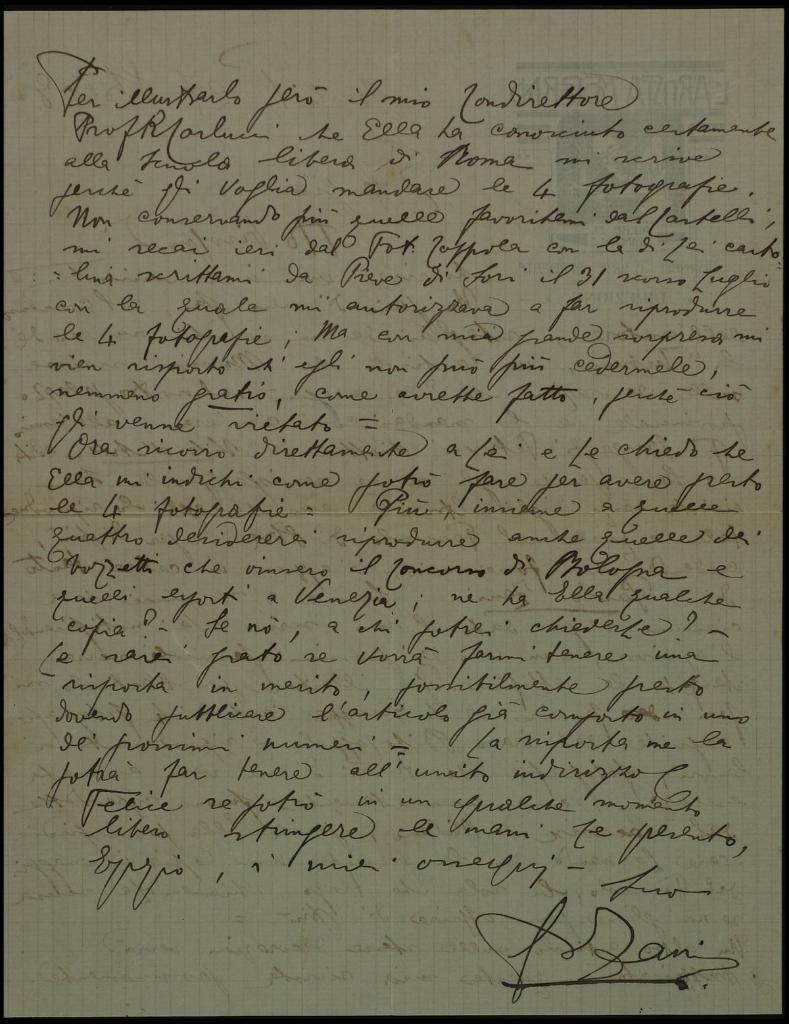 Per illustrarlo però il mio Condirettore
Prof R Carlucci che Ella ha conosciuto certamente
alla Scuola libera di Roma mi scrive
perchè gli voglia mandare le 4 fotografie.
Non conservando più quelle favoritemi dal Castelli,
mi recai ieri dal Fot. Zoppola con la di Lei carto=
=lina scrittami da Pieve di Sori il 31 scorso Luglio
con la quale mi autorizzava a far riprodurre
le 4 fotografie; Ma con mia grande sorpresa mi
vien risposto ch'egli non può più cedermele,
nemmeno gratis, come avrebbe fatto, perchè ciò
gli venne vietato =
Ora ricorro direttamente a Lei e Le chiedo che
Ella mi indichi come potrò fare per avere presto
le 4 fotografie = Più, insieme a quelle
quattro desidererei riprodurre anche quelle dei
bozzetti che vinsero il Concorso di Bologna e
quelli esposti a Venezia; ne ha Ella qualche
copia? - Se nò, a chi potrei chiederle? -
Le sarei grato se vorrà farmi tenere una
risposta in merito, possibilmente presto
dovendo pubblicare l'articolo già composto in uno
de' prossimi numeri = La risposta me la
potrà far tenere all'unito indirizzo
Felice se potrò in un qualche momento
libero stringere le mani Le presento,
Egregio, i miei ossequj -
Suo
Zani